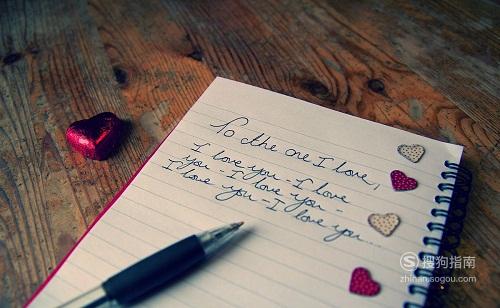 To the one I love,
I love you - I love
you - I love you -
I love you - I love you...
搜狗指南
zhinan.sogou.com